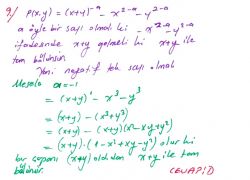 9) P(x,y) = (x+y)^-a - x^2-a - y^2-a
a öyle bir sayı olmalı ki - x^2-a - y^2-a
ifadesinde x+y gelmeli ki x+y ile
tam bölünsün.
Yani negatif tek sayı olmalı
Mesela a=-1
= (x+y)^1 - x^3 - y^3
= (x+y) - (x^3+y^3)
= (x+y) - (x+y)(x^2-xy+y^2)
= (x+y) · (1-x^2+xy-y^2) olur ki
bir çarpanı (x+y) olduğundan x+y ile tam
bölünür.
CEVAP: D